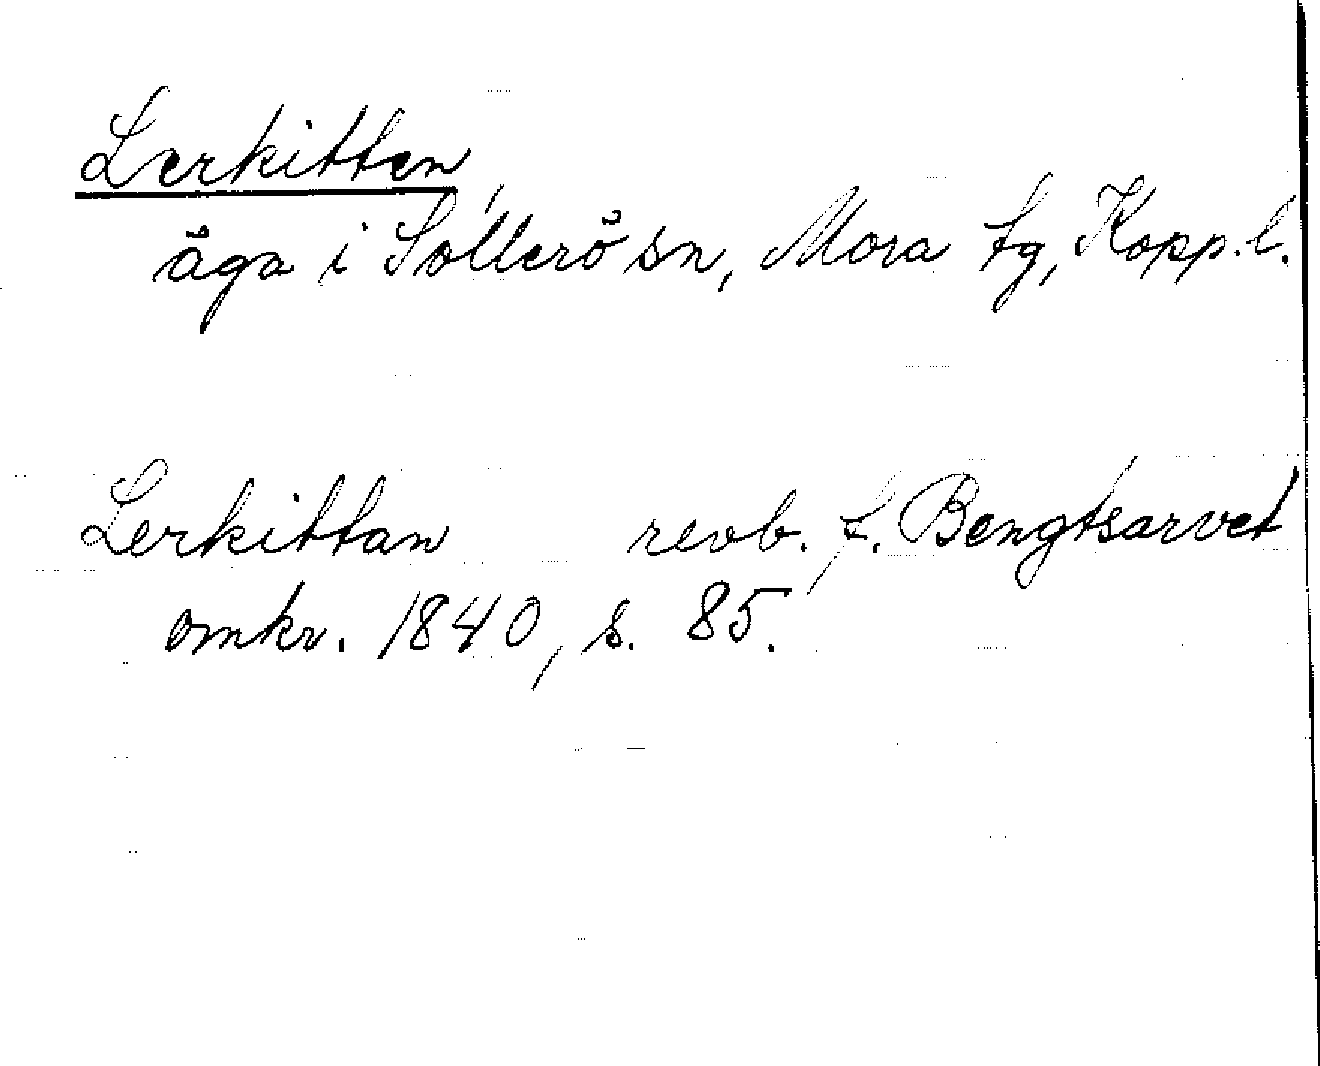 Lerkitten,
äga i Sollerö sn, Mora tg, Kopp.l.
Lerkittan revb. f. Bengtsarvet
omkr. 1840, s. 85.